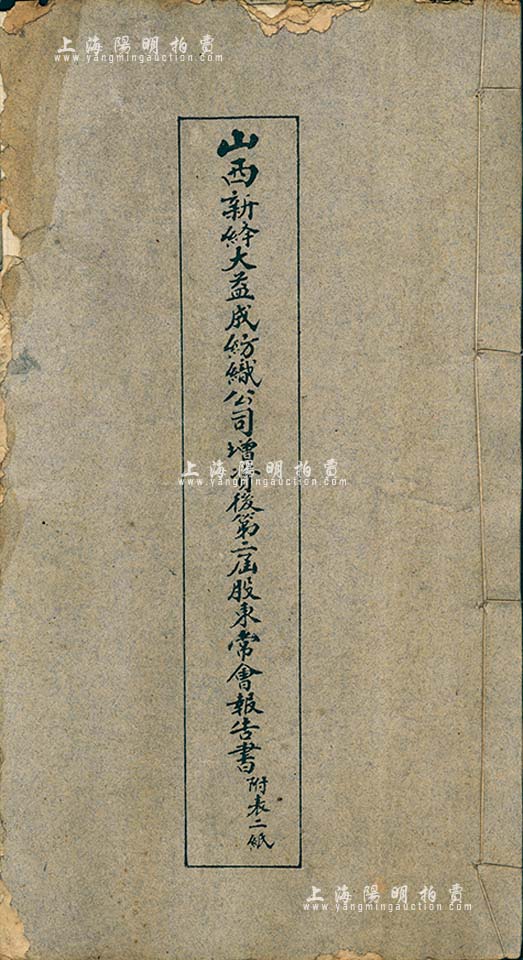 上海陽明拍賣
www.yangmingauction.com
山西新絳大益成紡織公司增資後第二屆股東常會報告書
附表二紙
上海陽明拍賣
www.yangmingauction.com
上海陽明拍賣
www.yangmingauction.com